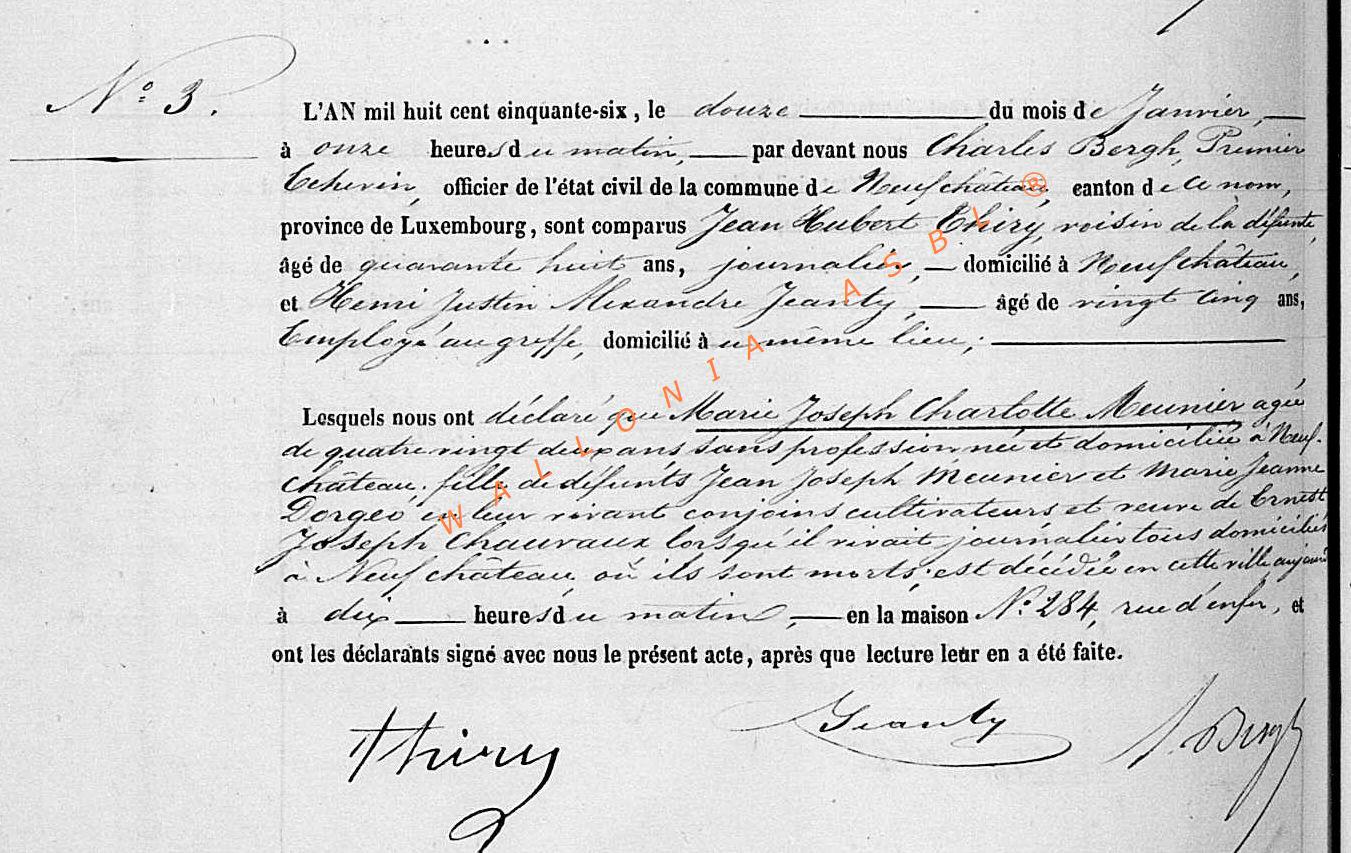 N° 3.
L'AN mil huit cent cinquante-six, le douze du mois de Janvier,
à onze heures du matin, par devant nous Charles Bergh, Premier
Echevin, officier de l'état civil de la commune de Neufchâteau, canton de ce nom,
province de Luxembourg, sont comparus Jean Hubert Thiry, voisin de la défunte,
âgé de quarante huit ans, journalier, domicilié à Neufchâteau,
et Henri Justin Alexandre Jeanty, âgé de vingt cinq ans,
Employé au greffe, domicilié au même lieu;
Lesquels nous ont déclaré que Marie Joseph Charlotte Meunier agée
de quatre vingt deux ans sans profession née et domiciliée à Neuf-
château, fille de défunts Jean Joseph Meunier et Marie Jeanne
Dorgeo, en leur vivant conjoins cultivateurs et veuve de Ernest
Joseph Chauvaux lorsqu'il vivait journalier tous domiciliés
à Neufchâteau où ils sont morts, est décédée en cette ville
à dix heures du matin, en la maison N° 284, rue d'enfer, et
ont les déclarants signé avec nous le présent acte, après que lecture leur en a été faite.
Thiry Jeanty Bergh
WALLONIA ASBL ®